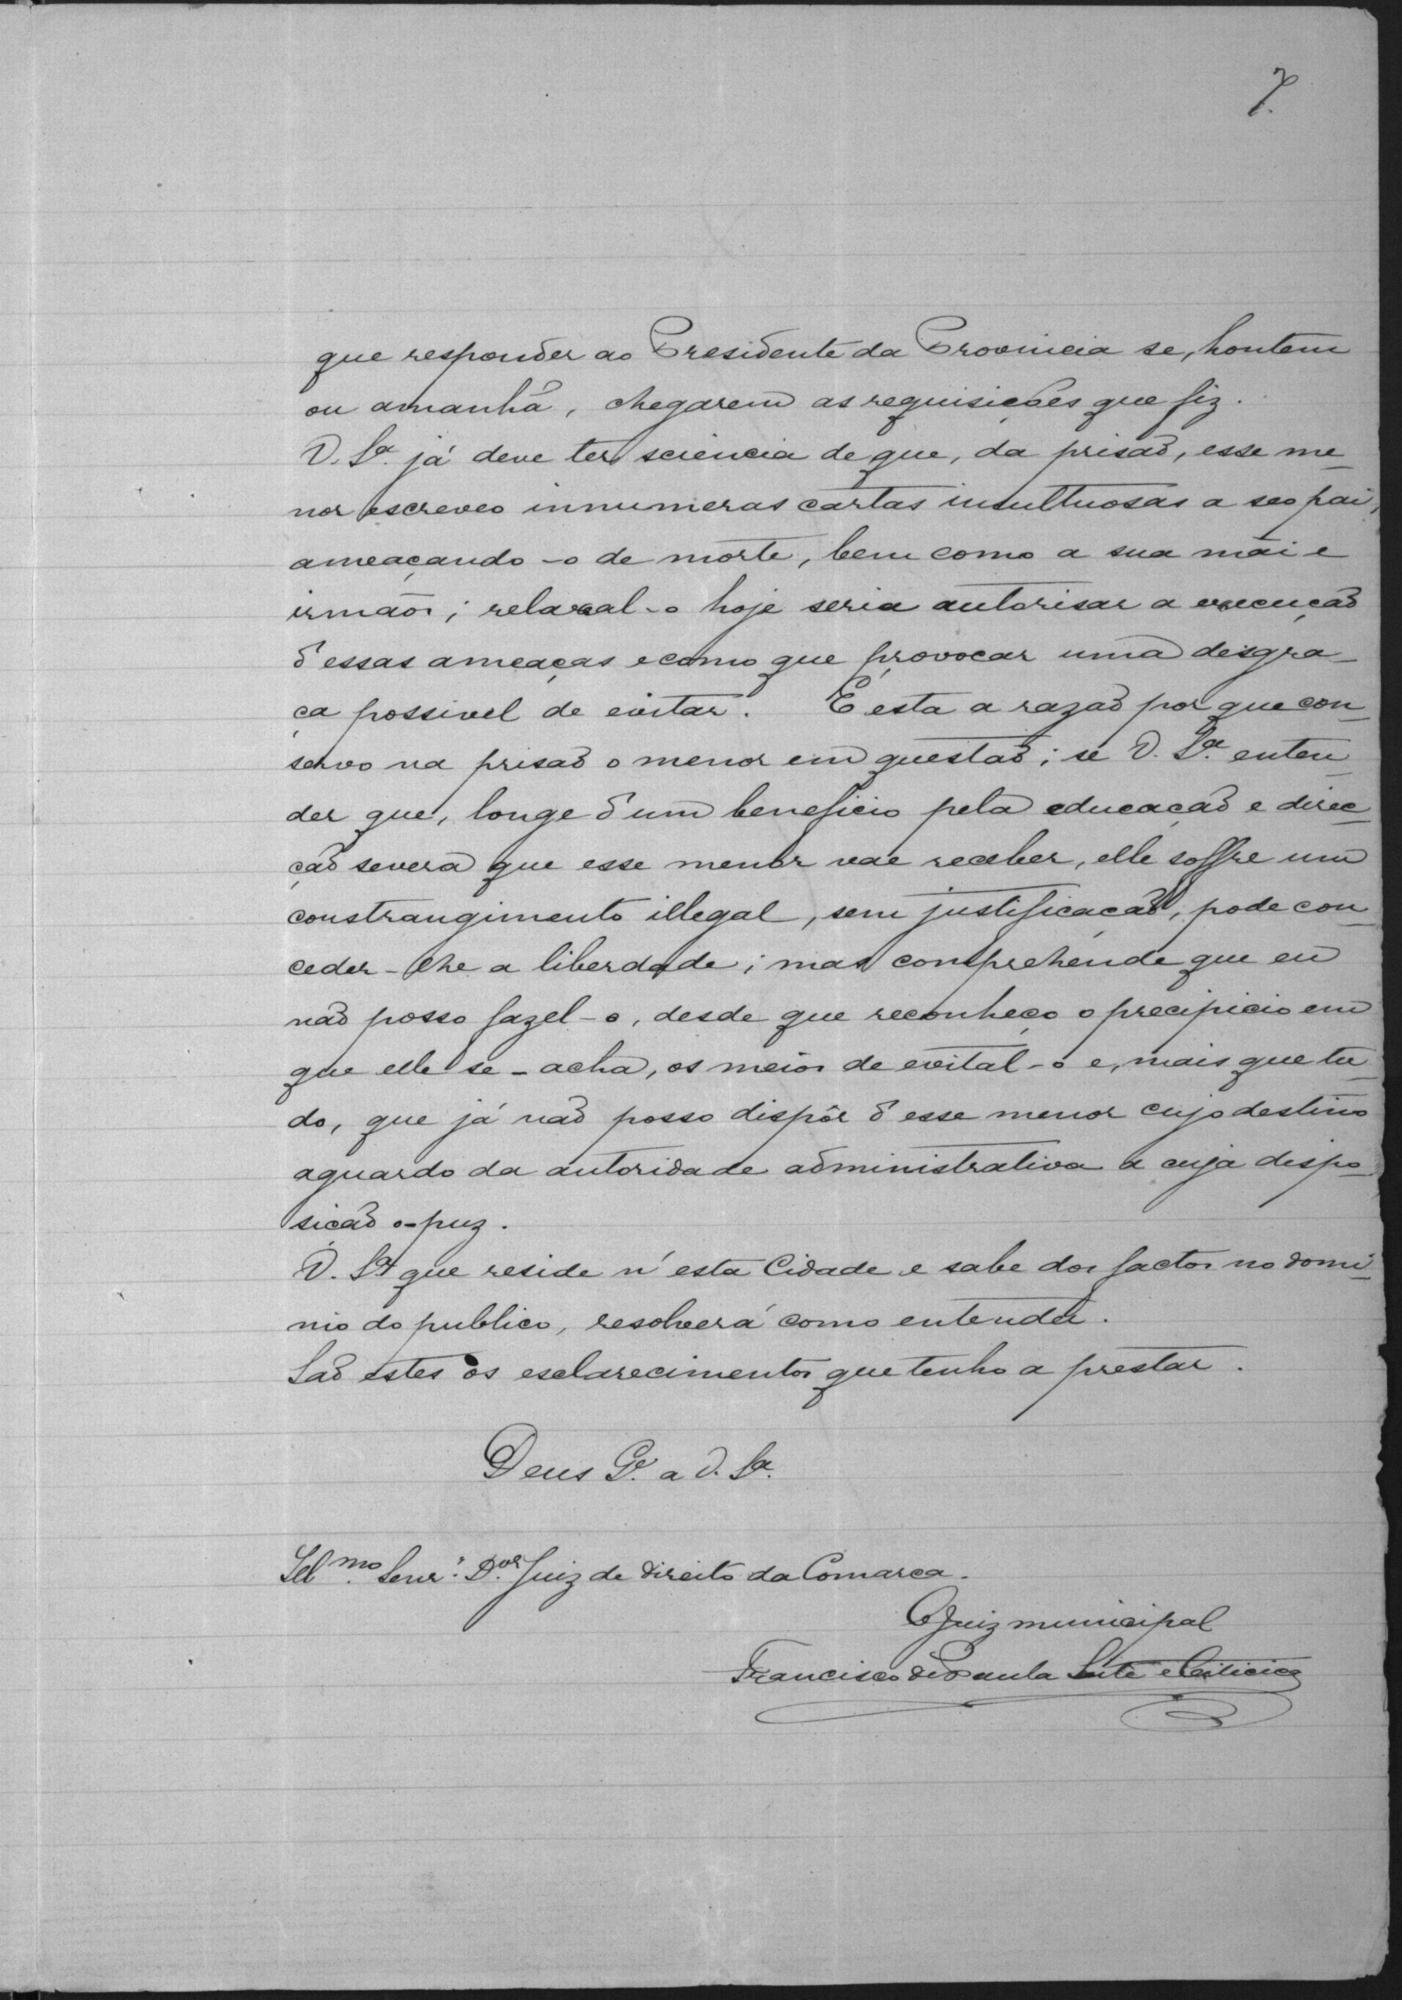 7.
que responder ao Presidente da Provincia se, hontem
ou amanhã, chegarem as requisições que fiz.
V. Sª. já deve ter sciencia de que, da prisão, esse me-
nor escreveo innumeras cartas insultuosas a seo pai,
ameaçando-o de morte, bem como a sua mãi e
irmãos; relaxal-o hoje seria autorisar a execução
d'essas ameaças e como que provocar uma desgra-
ça possivel de evitar. É esta a razão por que con-
servo na prisão o menor em questão; se V. Sª. enten-
der que, longe d'um beneficio pela educação e direc-
ção severa que esse menor vae receber, elle soffre um
constrangimento illegal, sem justificação, pode con-
ceder-lhe a liberdade; mas comprehende que eu
não posso fazel-o, desde que reconheço o precipicio em
que elle se-acha, os meios de evital-o e, mais que tu-
do, que já não posso dispôr d'esse menor cujo destino
aguardo da autoridade administrativa a cuja dispo-
sição o-puz.
V. Sª que reside n'esta Cidade e sabe dos factos no domi-
nio do publico, resolverá como entender.
São estes os esclarecimentos que tenho a prestar.
Deus Gᵉ. a V. Sª.
Illᵐᵒ. Senrˢ. Dᵒʳ. Juiz de direito da Comarca.
O Juiz municipal
Francisco de Paula Leite e Oiticica